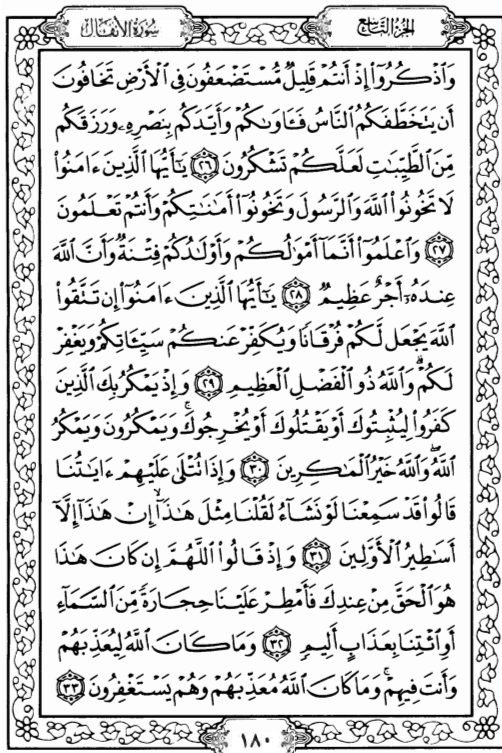 الجزء التاسع
سورة الأنفال
وَاذْكُرُوا إِذْ أَنتُمْ قَلِيلٌ مُّسْتَضْعَفُونَ فِي الْأَرْضِ تَخَافُونَ
أَن يَتَخَطَّفَكُمُ النَّاسُ فَـَٔاوَىٰكُمْ وَأَيَّدَكُم بِنَصْرِهِۦ وَرَزَقَكُم
مِّنَ الطَّيِّبَٰتِ لَعَلَّكُمْ تَشْكُرُونَ ٢٦ يَٰٓأَيُّهَا الَّذِينَ ءَامَنُوا
لَا تَخُونُوا اللَّهَ وَالرَّسُولَ وَتَخُونُوٓا أَمَٰنَٰتِكُمْ وَأَنتُمْ تَعْلَمُونَ
٢٧ وَاعْلَمُوٓا أَنَّمَآ أَمْوَٰلُكُمْ وَأَوْلَٰدُكُمْ فِتْنَةٌ وَأَنَّ اللَّهَ
عِندَهُۥٓ أَجْرٌ عَظِيمٌ ٢٨ يَٰٓأَيُّهَا الَّذِينَ ءَامَنُوٓا إِن تَتَّقُوا
اللَّهَ يَجْعَل لَّكُمْ فُرْقَانًا وَيُكَفِّرْ عَنكُمْ سَيِّـَٔاتِكُمْ وَيَغْفِرْ
لَكُمْ ۗ وَاللَّهُ ذُو الْفَضْلِ الْعَظِيمِ ٢٩ وَإِذْ يَمْكُرُ بِكَ الَّذِينَ
كَفَرُوا لِيُثْبِتُوكَ أَوْ يَقْتُلُوكَ أَوْ يُخْرِجُوكَ ۚ وَيَمْكُرُونَ وَيَمْكُرُ
اللَّهُ ۖ وَاللَّهُ خَيْرُ الْمَٰكِرِينَ ٣٠ وَإِذَا تُتْلَىٰ عَلَيْهِمْ ءَايَٰتُنَا
قَالُوا قَدْ سَمِعْنَا لَوْ نَشَآءُ لَقُلْنَا مِثْلَ هَٰذَآ ۙ إِنْ هَٰذَآ إِلَّآ
أَسَٰطِيرُ الْأَوَّلِينَ ٣١ وَإِذْ قَالُوا اللَّهُمَّ إِن كَانَ هَٰذَا
هُوَ الْحَقَّ مِنْ عِندِكَ فَأَمْطِرْ عَلَيْنَا حِجَارَةً مِّنَ السَّمَآءِ
أَوِ ائْتِنَا بِعَذَابٍ أَلِيمٍ ٣٢ وَمَا كَانَ اللَّهُ لِيُعَذِّبَهُمْ
وَأَنتَ فِيهِمْ ۚ وَمَا كَانَ اللَّهُ مُعَذِّبَهُمْ وَهُمْ يَسْتَغْفِرُونَ ٣٣
١٨٠